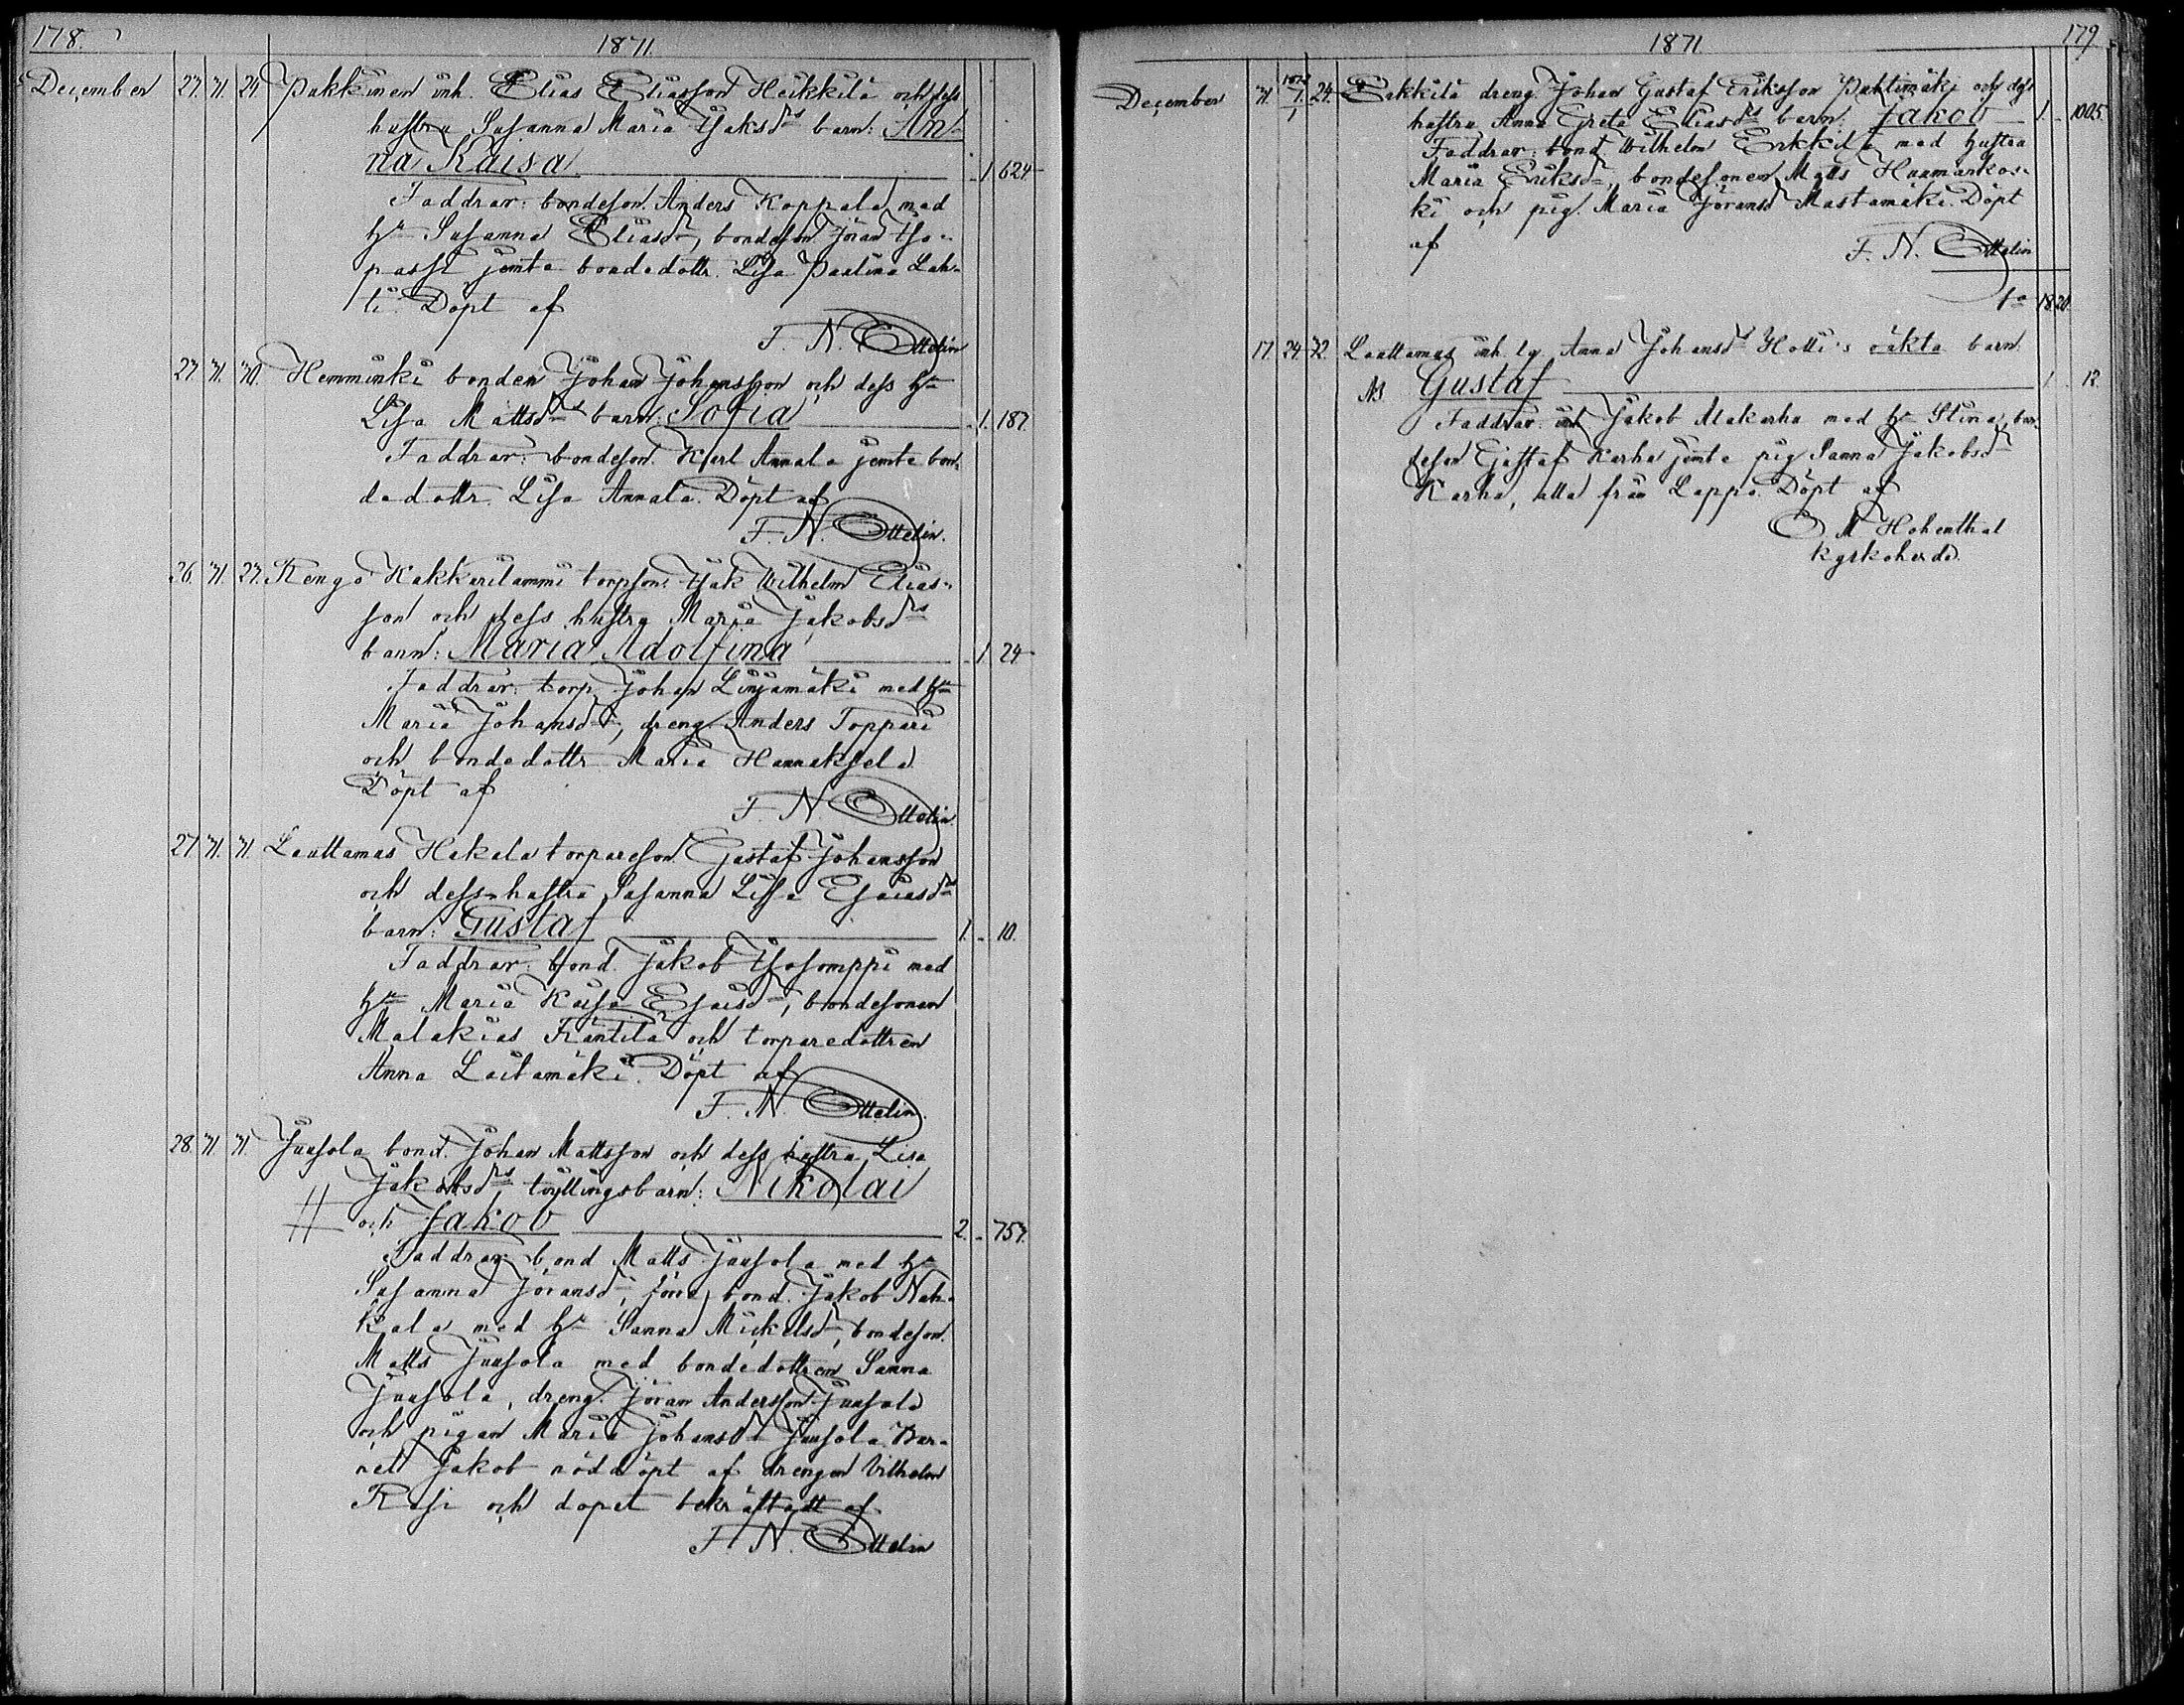 178.
1871.
December 27. 31. 24. Pukkinen inh. Elias Eliasson Heikkilä och dess
hustru Susanna Maria Isaksdrs barn: An-
na Kaisa 1 624
Faddrar: bondeson. Anders Koppala med
hu Susanna Eliasdr, bondeson Jöran Iso-
passi jemte bondedottr. Lisa Paulina Lah-
ti. Döpt af
F. N. Ottelin
27 31. 30. Hemminki bonden Johan Johansson och dess hu
Lisa Mattsdrs barn: Sofia 1. 187.
Faddrar: bondeson. Karl Annala jemte bon-
dedottr. Lisa Annala. Döpt af
F. N. Ottelin.
26. 31. 27. Kengo Kakkurilammi torpson. Isak Wilhelm Elias-
son och dess hustru Maria Jakobsdrs
barn: Maria Adolfina 1 24
Faddrar: torp. Johan Linjamäki med hu
Maria Johansdr, dreng. Anders Toppari
och bondedottr Maria Hannuksela
Döpt af
F. N. Ottelin.
27 31. 31. Lauttamus Hakala torpareson Gustaf Johansson
och dess hustru Susanna Lisa Esaiasdrs
barn: Gustaf 1. 10.
Faddrar: bond. Jakob Isosomppi med
hu Maria Kaisa Esaisdr, bondesonen
Malakias Fräntilä och torparedottren
Anna Laitamäki. Döpt af
F. N. Ottelin.
28. 31 31. Juusola bond. Johan Mattsson och dess hustru Lisa
Jakobsdrs tvillingsbarn: Nikolai
och Jakob 2. 757.
Faddrar: bond Matts Juusola med hu
Susanna Jöransdr, förra bond. Jakob Nah-
kala med hu Sanna Mickelsdr, bondeson.
Matts Juusola med bondedottren Sanna
Juusola, dreng. Jöran Andersson Juusola
och pigan Maria Johansdr Juusola. Bar-
net Jakob nöddöpt af drengen Vilhelm
Rasi och dopet bekräftadt af
F. N. Ottelin
179
1871
December 31. 1872 1. 1 24. Erkkilä dreng Johan Gustaf Eriksson Puhtimäki och dess
hustru Anna Greta Eliasdrs barn: Jakob 1. 1005.
Faddrar: bond Wilhelm Erkkilä med hustru
Maria Eriksdr, bondesonen Matts Huumarkos-
ki och pig. Maria Jöransdr Mastamäki. Döpt
af
F. N. Ottelin
1820
17. 24. 32. Lauttamus inh. Anna Johansdr Hotti's oäkta barn:
Gustaf 1. 12.
Faddrar: inh Jakob Alakarha med hu Stina, bon-
deson Gustaf Karha jemte pig Sanna Jakobsdr
Karha, alla från Lappo. Döpt af
C M Hohenthal
kyrkoherde.